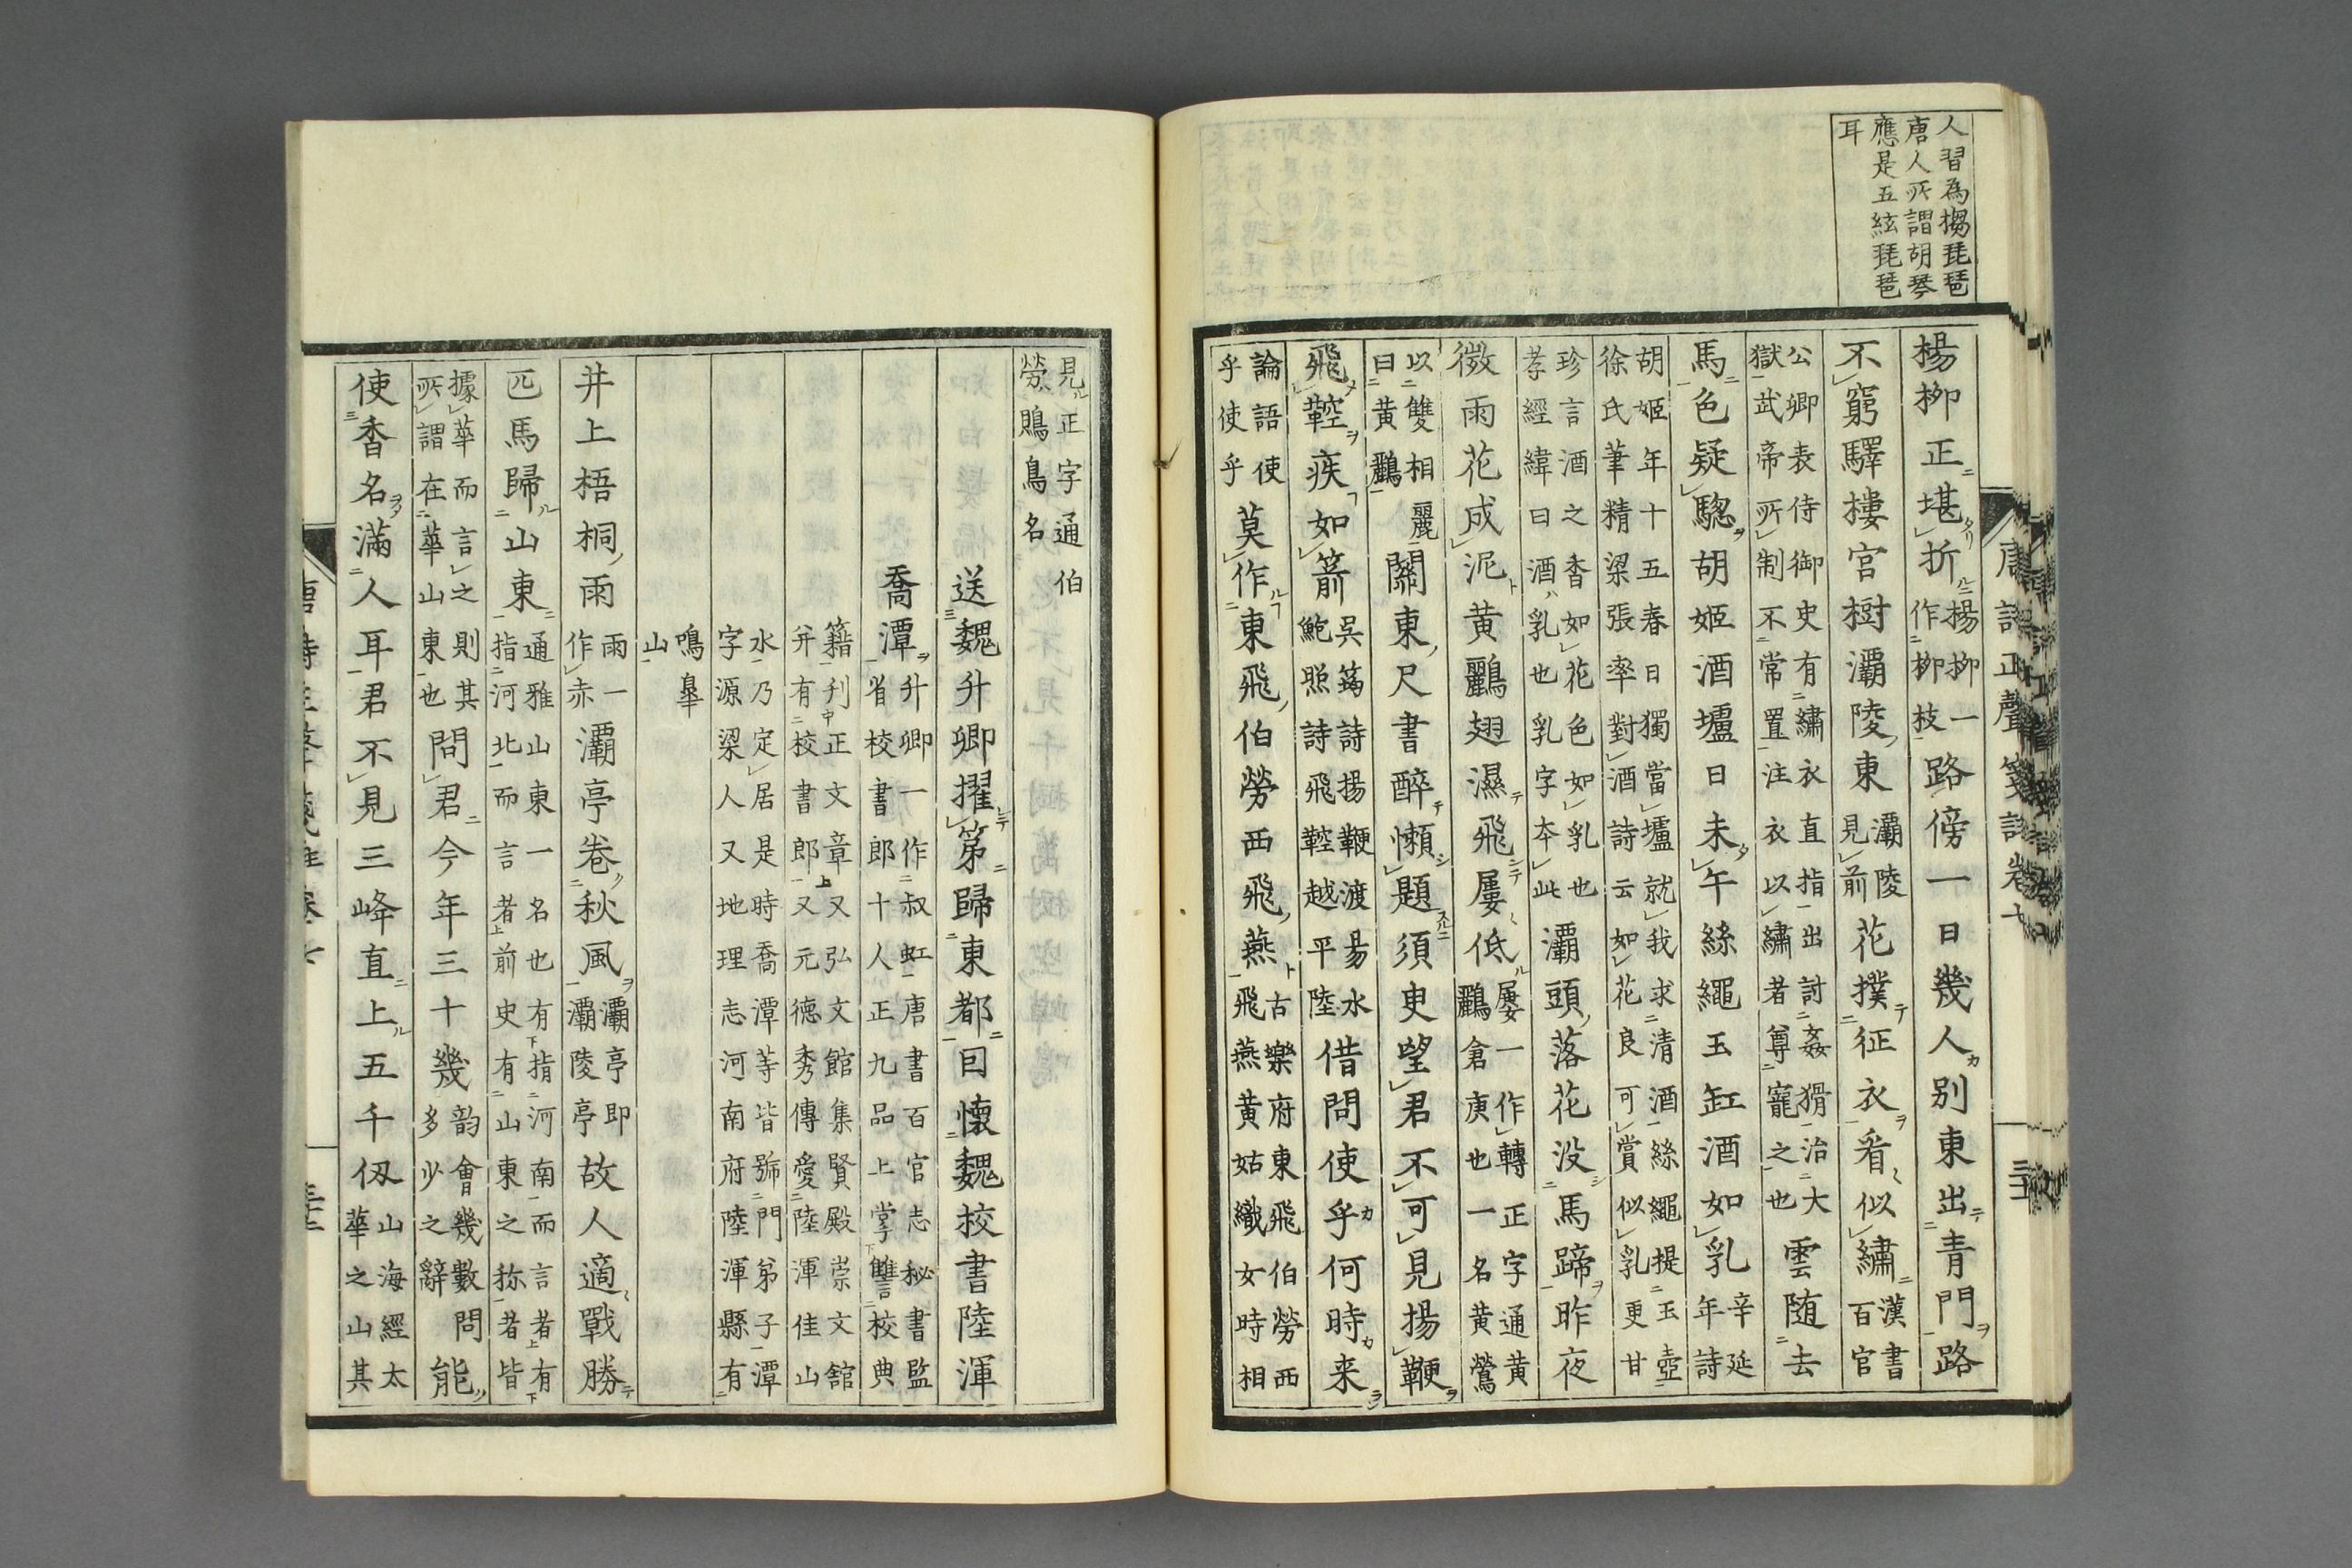 人習為搊琵琶
唐人所謂胡琴
應是五絃琵琶
耳
唐詩正聲箋註卷七
楊柳正堪折
楊柳一
作柳枝
路傍一日幾人別東出青門路
不窮驛樓宮樹灞陵東
灞陵
見前
花撲征衣看似繡
漢書
百官
公卿表侍御史有繡衣直指出討姦猾治大
獄武帝所制不常置注衣以繡者尊寵之也
雲随去
馬色疑驄胡姬酒壚日未午絲繩玉缸酒如乳
辛延
年詩
胡姬年十五春日獨當壚就我求清酒絲繩提玉壺
徐氏筆精梁張率對酒詩云如花良可賞似乳更甘
珍言酒之香如花色如乳也
孝經緯曰酒乳也乳字本此
灞頭落花没馬蹄昨夜
微雨花成泥黃鸝翅濕飛屢低
屢一作轉正字通黄
鸝倉庚也一名黄鶯
以雙相麗
曰黄鸝
關東尺書醉懶題須臾望君不可見揚鞭
飛鞚疾如箭
吳筠詩揚鞭渡易水
鮑照詩飛鞚越平陸
借問使乎何時来
論語使
乎使乎
莫作東飛伯勞西飛燕
古樂府東飛伯勞西
飛燕黄姑織女時相
見正字通伯
勞鵙鳥名
送魏升卿擢第歸東都因懷魏挍書陸渾
喬潭
升卿一作叔虹唐書百官志秘書監
省校書郎十人正九品上掌讐校典
籍刋正文章又弘文館集賢殿崇文舘
并有校書郎又元德秀傳愛陸渾佳山
水乃定居是時喬潭等皆號門弟子潭
字源梁人又地理志河南府陸渾縣有
鳴皐
山
井上梧桐雨
雨一
作赤
灞亭卷秋風
灞亭即
灞陵亭
故人適戰勝
匹馬歸山東
通雅山東一名也有指河南而言者有
指河北而言者前史有山東之称者皆
據華而言之則其
所謂在華山東也
問君今年三十幾
韵會幾數問
多少之辭
能
使香名滿人耳君不見三峰直上五千仭
山海經太
華之山其